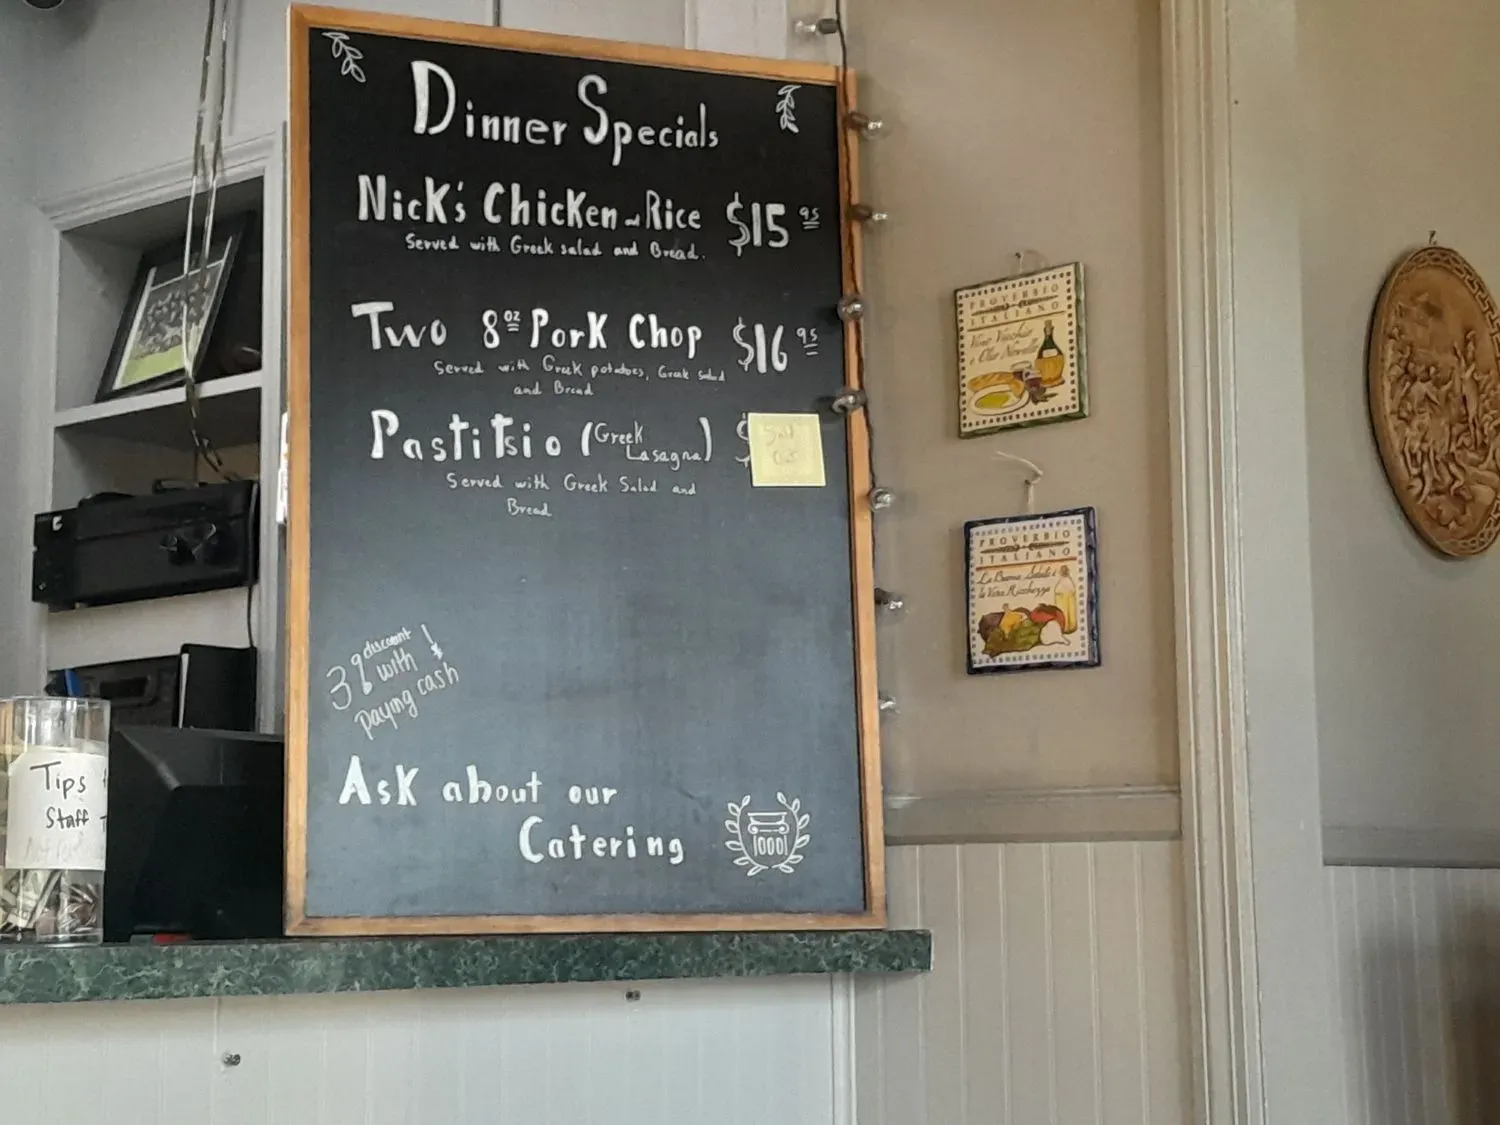 Dinner Specials
Nick's Chicken and Rice $15 95
Served with Greek salad and Bread.
Two 8 oz Pork Chop $16 95
Served with Greek potatoes, Greek salad
and Bread
Pastitsio (Greek Lasagna) $
Sold
Out
Served with Greek Salad and
Bread
3% discount
with
paying cash!
Ask about our
Catering
Tips
Staff
PROVERBIO
ITALIANO
Vino Vecchio
e Olio Novello
PROVERBIO
ITALIANO
La Buona Salute è
la Vera Ricchezza